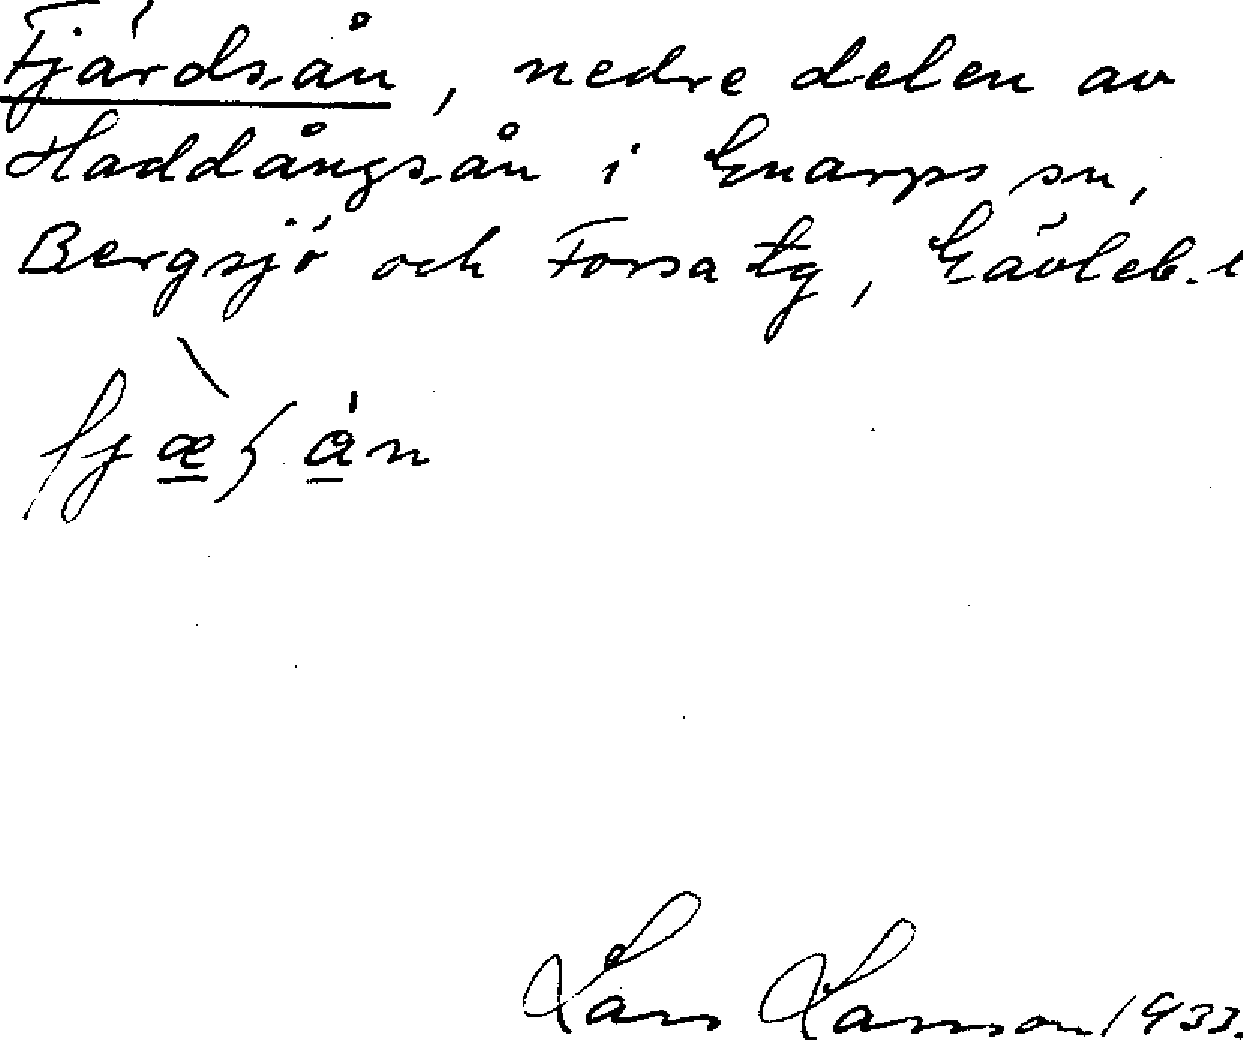 Fjärds-ån, nedre delen av
Haddångs-ån i Gnarps sn,
Bergsjö och Forsa tg, Gävleb. l
Lars Larsson 1933.